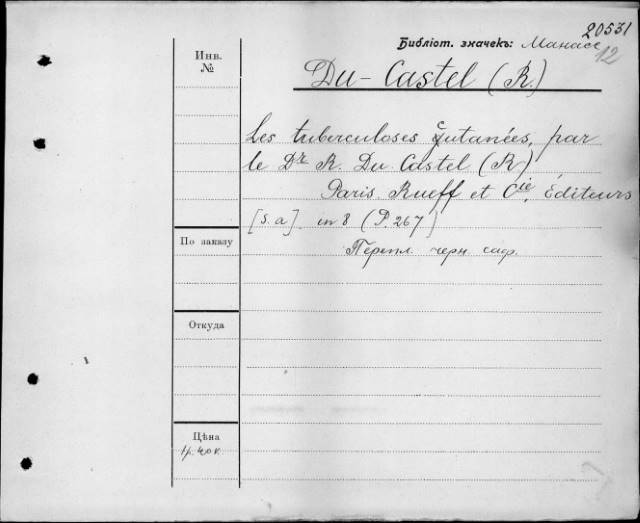 20531
Библіот. значекъ: Манасс
12
Инв.
№
Du-Castel (R.)
Les tuberculoses cutanées, par
le Dr R. Du Castel (R)
Paris. Rueff et Cie, Éditeurs
[s. a]. in 8 (P. 267)
По заказу
Перепл. черн. саф.
Откуда
Цѣна
1р. 40 к.